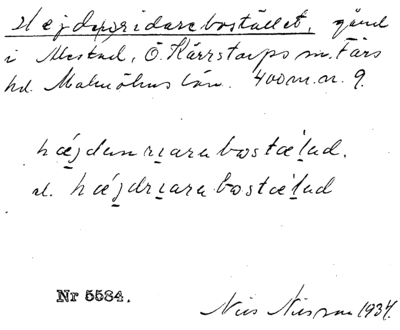 Hejderidarebostället, gård
i Alestad, Ö. Kärrstorps sn. Färs
hd. Malmöhus län. 400 m. n. 9.
hæjdanriarabostælad.
el. hæjdriarabostælad
Nr 5584.
Nils Nilsson 1934.